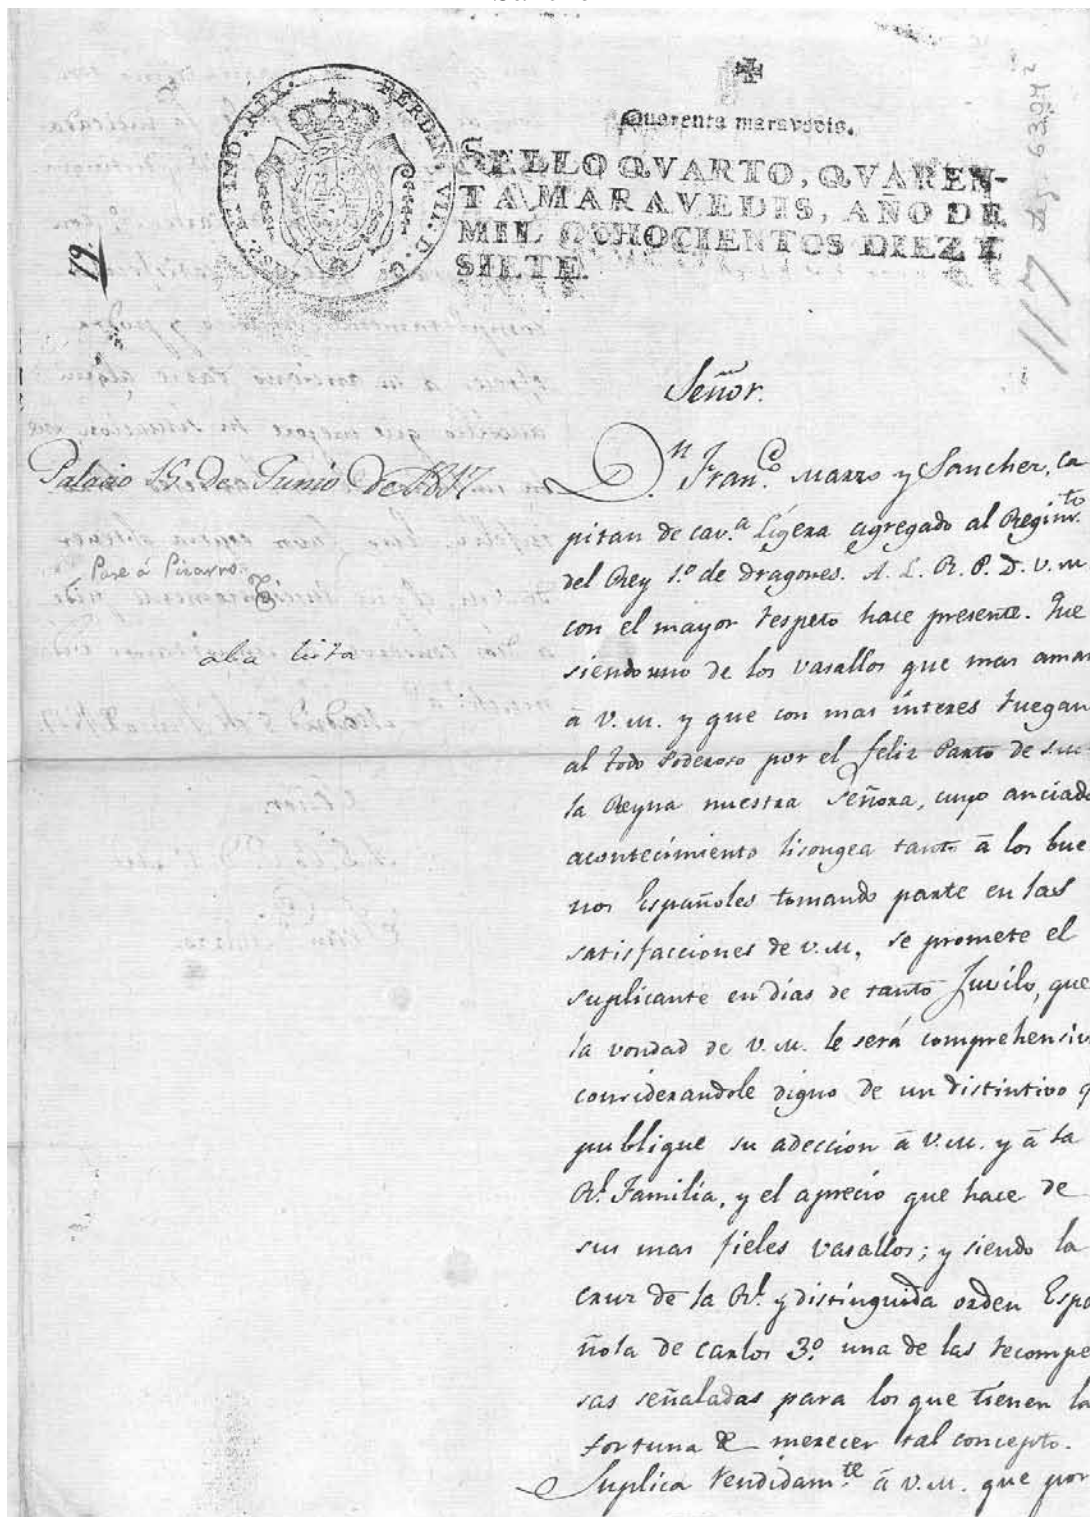 Quarenta maravedis.
SELLO QVARTO, QVAREN-
TA MARAVEDIS, AÑO DE
MIL OCHOCIENTOS DIEZ Y
SIETE.
HISP. ET IND. REX. FERDIN. VII. D. G.
79.
117
Señor.
Palacio 15 de Junio de 1817
Pase á Pizarro
a la lista
Dn. Franco. Marzo y Sanchez, ca
pitan de cav.a Ligera agregado al Regimto.
del Rey 1.º de dragones. A. L. R. P. D. V. M
con el mayor respeto hace presente. Que
siendo uno de los vasallos que mas aman
â V. M. y que con mas interes ruegan
al todo Poderoso por el feliz Parto de S. M.
la Reyna nuestra Señora, cuyo anciado
acontecimiento lisongea tanto â los bue
nos Españoles tomando parte en las
satisfacciones de V. M., se promete el
suplicante en dias de tanto Juvilo, que
la vondad de V. M. le será comprehensiv
considerandole digno de un distintivo q
publique su adeccion â V. M. y â la
Rl. Familia, y el aprecio que hace de
sus mas fieles vasallos; y siendo la
cruz de la Rl. y distinguida orden Espa
ñola de Carlos 3.º una de las recompe
sas señaladas para los que tienen la
fortuna de merecer tal concepto.
Suplica rendidamte. â V. M. que por